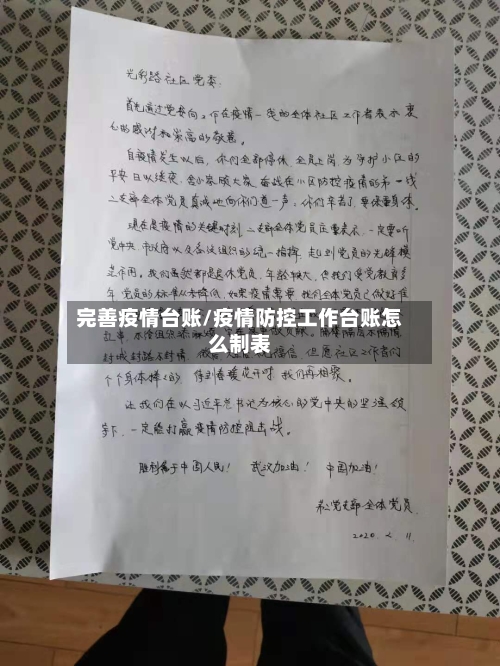 光彩路社区党委：
首先通过党委向工作在疫情一线的全体社区工作者表示衷
心的感谢和崇高的敬意。
自疫情发生以后，你们全部停休 全员上岗 为了护小区的
平安 日以继夜，舍小家顾大家 奋战在小区防控疫情的第一线
二支部全体党员真诚地向你们道一声，你们辛苦了 要保重身体。
现在是疫情的关键时刻 二支部全体党员
党中央、市政府以及各级组织的统一指挥，起到党员的先锋模
范作用。我们虽然都是退休党员、年龄较大，但我们受党教育多
年 党员的标准从未降低，如果疫情需要 我们全体党员已做好准
完善疫情台账/疫情防控工作台账怎
么制表
封城封路不封情
个个身体棒棒的 待到春暖花开时 我们再相聚。
让我们在以习近平总书记为核心的党中央的坚强领
导下，一定能打赢疫情防控阻击战。
胜利属于中国人民！ 武汉加油！ 中国加油！
第二党支部全体党员
2020.2.11